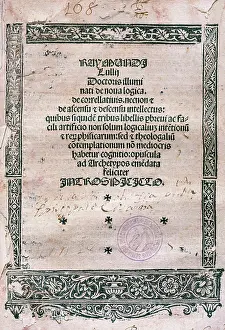 108
RAYMUNDI
Lullij
Doctoris illumi
nati de noua logica.
de correllatiuis. necnon &
de ascensu & descensu intellectus:
quibus siquidē tribus libellis pbreui ac fa
cili artificio non solum logicaliū intētionū
& rerū phisicarum: sed & theologaliū
cōtemplationum nō mediocris
habetur cognitio: opuscula
ad Archetypos emēdata
feliciter
INTROSPICITO.